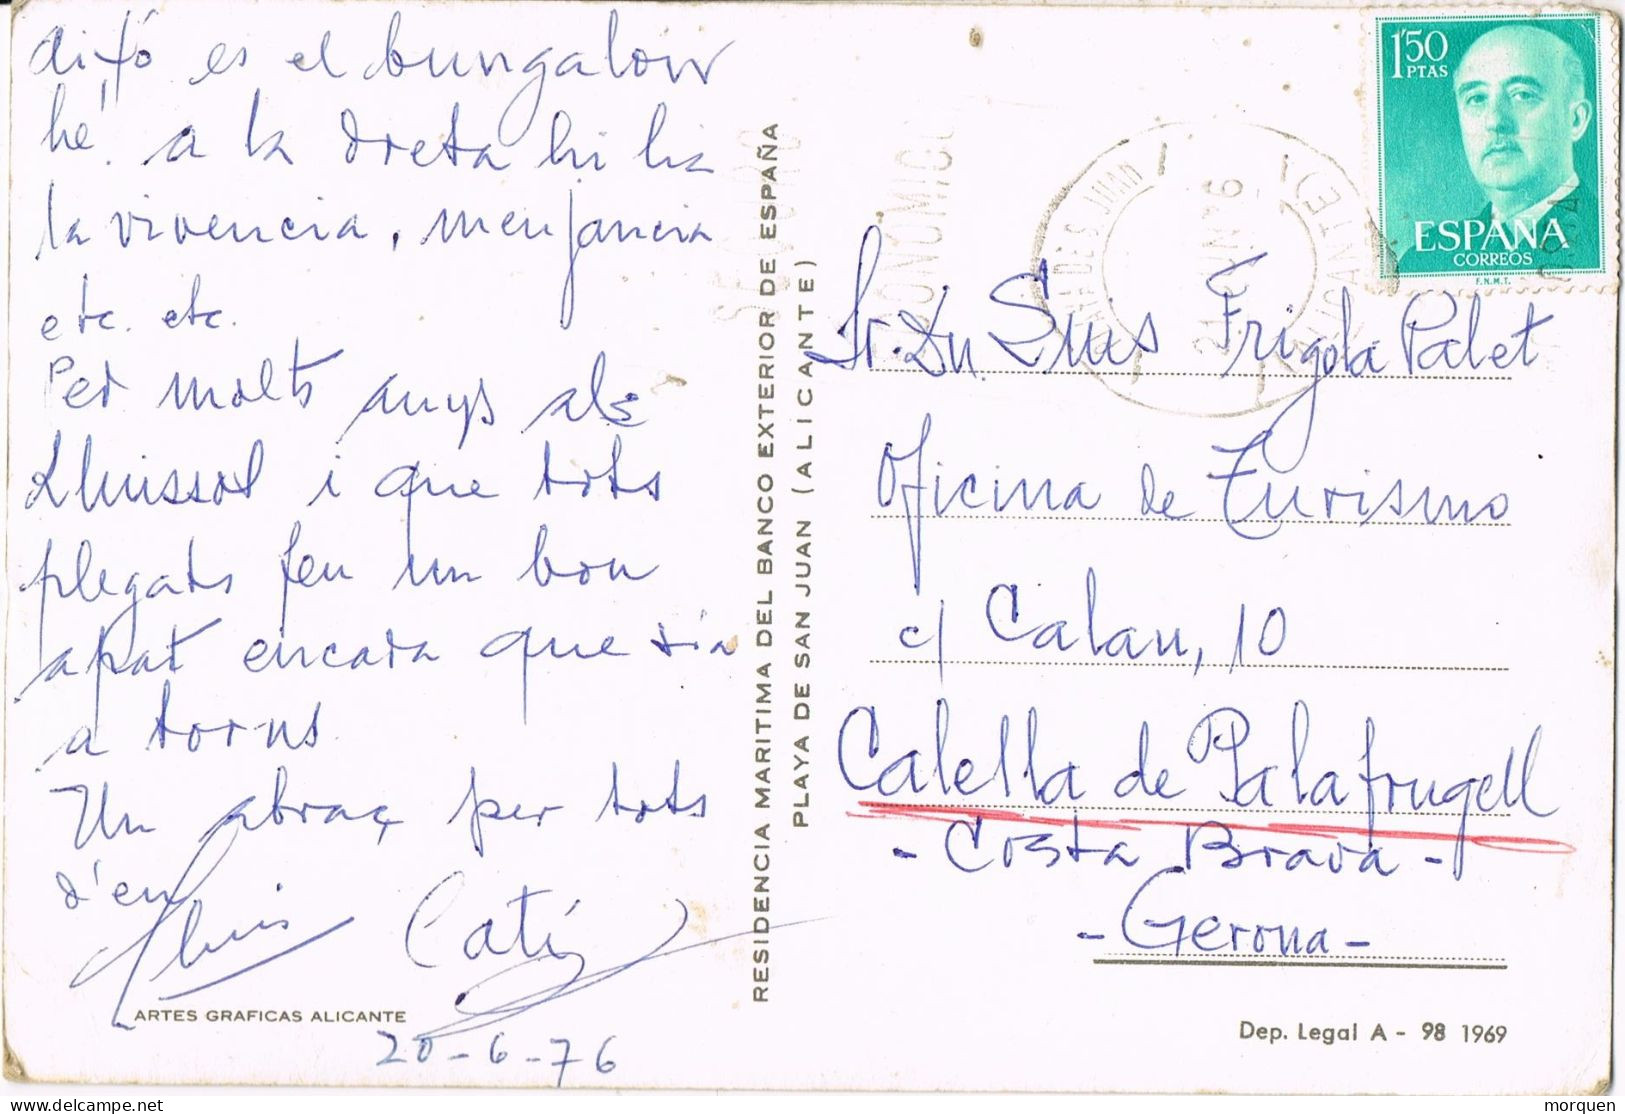 aixó es el bungalow
hé! a la dreta hi ha
la vivencia, menjancia
etc. etc.
Per molts anys als
Lluissos i que tots
plegats feu un bon
apat encara que sia
a torns.
Un abraç per tots
d'en
Lluis Cati
ARTES GRAFICAS ALICANTE
20-6-76
RESIDENCIA MARITIMA DEL BANCO EXTERIOR DE ESPAÑA
PLAYA DE SAN JUAN (ALICANTE)
1'50
PTAS
ESPAÑA
CORREOS
F.N.M.T.
Sr. Dn. Luis Frigola Palet
Oficina de Turismo
c/ Calau, 10
Calella de Palafrugell
- Costa Brava -
- Gerona -
Dep. Legal A - 98 1969
morquen
delcampe.net